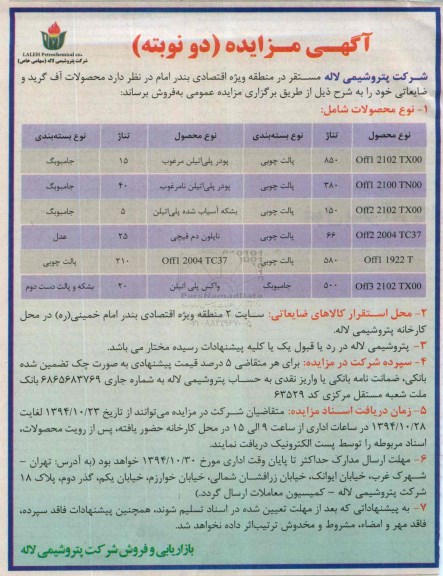 LALEH Petrochemical co.
شرکت پتروشیمی لاله (سهامی خاص)
آگهی مزایده (دو نوبته)
شرکت پتروشیمی لاله مستقر در منطقه ویژه اقتصادی بندر امام در نظر دارد محصولات آف گرید و
ضایعاتی خود را به شرح ذیل از طریق برگزاری مزایده عمومی به‌فروش برساند:
۱- نوع محصولات شامل:
نوع محصول تناژ نوع بسته‌بندی نوع محصول تناژ نوع بسته‌بندی
Off1 2102 TX00 ۸۵۰ پالت چوبی پودر پلی‌اتیلن مرغوب ۱۵ جامبوبگ
Off1 2100 TN00 ۳۸۰ پالت چوبی پودر پلی‌اتیلن نامرغوب ۴۰ جامبوبگ
Off2 2102 TX00 ۱۵۰ پالت چوبی بشکه آسیاب شده پلی‌اتیلن ۵ جامبوبگ
Off2 2004 TC37 ۶۶ پالت چوبی نایلون دم قیچی ۲۵ عدل
Off1 1922 T ۵۸۰ پالت چوبی Off1 2004 TC37 ۲۱۰ پالت چوبی
Off3 2102 TX00 ۵۰۰ جامبوبگ واکس پلی اتیلن ۲۰ بشکه و پالت دست دوم
۲- محل استقرار کالاهای ضایعاتی: سایت ۲ منطقه ویژه اقتصادی بندر امام خمینی(ره) در محل
کارخانه پتروشیمی لاله.
۳- پتروشیمی لاله در رد یا قبول یک یا کلیه پیشنهادات رسیده مختار می باشد.
۴- سپرده شرکت در مزایده: برای هر متقاضی ۵ درصد قیمت پیشنهادی به صورت چک تضمین شده
بانکی، ضمانت نامه بانکی یا واریز نقدی به حساب پتروشیمی لاله به شماره جاری ۶۸۶۵۶۸۳۷۶۹ بانک
ملت شعبه مستقل مرکزی کد ۶۳۵۲۹
۵- زمان دریافت اسناد مزایده: متقاضیان شرکت در مزایده می‌توانند از تاریخ ۱۳۹۴/۱۰/۲۳ لغایت
۱۳۹۴/۱۰/۲۸ در ساعات اداری از ساعت ۹ الی ۱۵ در محل کارخانه حضور یافته، پس از رویت محصولات،
اسناد مربوطه را توسط پست الکترونیک دریافت نمایند.
۶- مهلت ارسال مدارک حداکثر تا پایان وقت اداری مورخ ۱۳۹۴/۱۰/۳۰ خواهد بود (به آدرس: تهران -
شهرک غرب، خیابان ایوانک، خیابان زرافشان شمالی، خیابان خوارزم، خیابان یکم، گذر دوم، پلاک ۱۸
شرکت پتروشیمی لاله - کمیسیون معاملات ارسال گردد.)
۷- به پیشنهاداتی که بعد از مهلت تعیین شده در اسناد تسلیم شوند، همچنین پیشنهادات فاقد سپرده،
فاقد مهر و امضاء، مشروط و مخدوش ترتیب‌اثر داده نخواهد شد.
بازاریابی و فروش شرکت پتروشیمی لاله